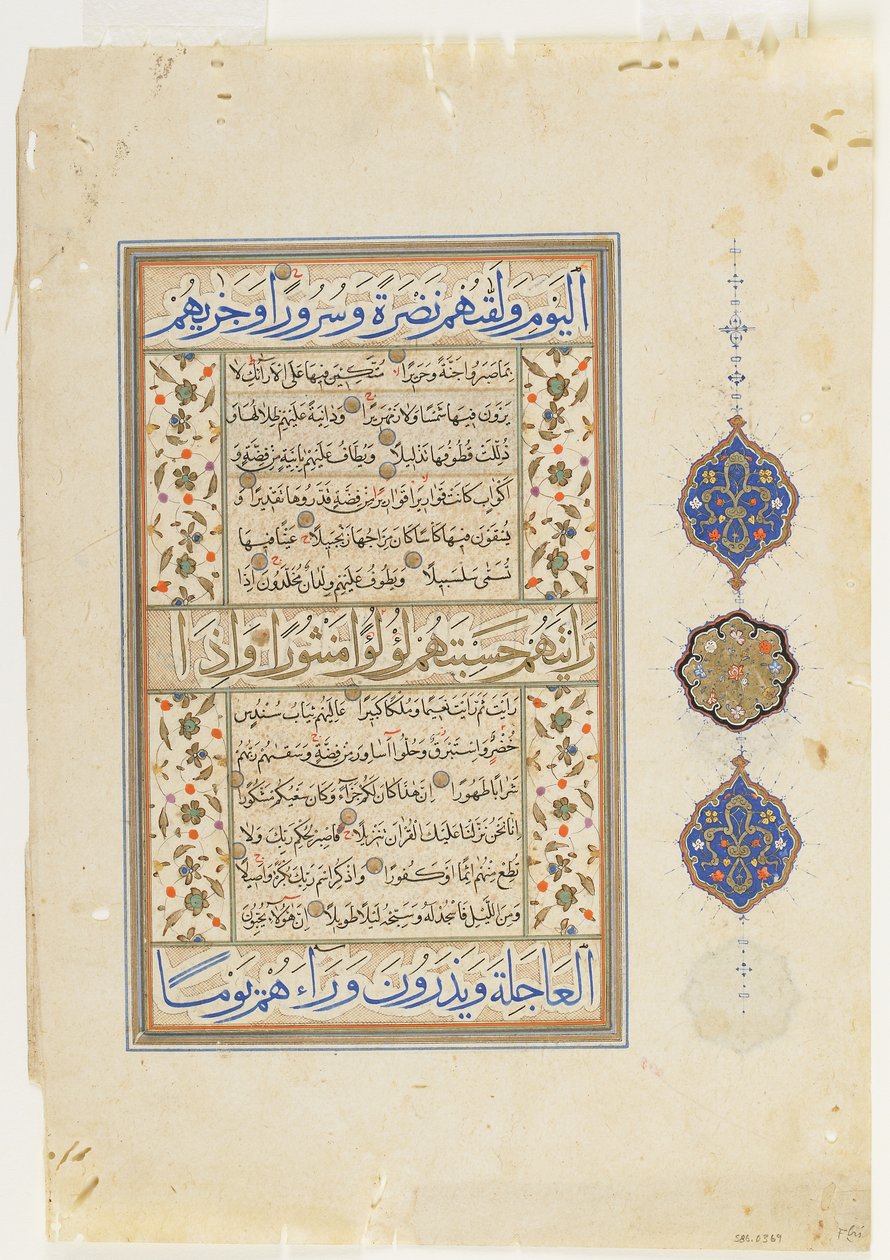 الْيَوْمِ وَلَقّٰهُمْ نَضْرَةً وَسُرُورًا وَجَزٰيهُمْ
بِمَا صَبَرُوا جَنَّةً وَحَرِيرًا مُتَّكِـِٔينَ فِيهَا عَلَى الْاَرَائِكِ لَا
يَرَوْنَ فِيهَا شَمْسًا وَلَا زَمْهَرِيرًا وَدَانِيَةً عَلَيْهِمْ ظِلَالُهَا وَ
ذُلِّلَتْ قُطُوفُهَا تَذْلِيلًا وَيُطَافُ عَلَيْهِمْ بِاٰنِيَةٍ مِنْ فِضَّةٍ وَ
اَكْوَابٍ كَانَتْ قَوَارِيرَا قَوَارِيرَا مِنْ فِضَّةٍ قَدَّرُوهَا تَقْدِيرًا وَ
يُسْقَوْنَ فِيهَا كَاْسًا كَانَ مِزَاجُهَا زَنْجَبِيلًا عَيْنًا فِيهَا
تُسَمّٰى سَلْسَبِيلًا وَيَطُوفُ عَلَيْهِمْ وِلْدَانٌ مُخَلَّدُونَ اِذَا
رَاَيْتَهُمْ حَسِبْتَهُمْ لُؤْلُؤًا مَنْثُورًا وَاِذَا
رَاَيْتَ ثَمَّ رَاَيْتَ نَعِيمًا وَمُلْكًا كَبِيرًا عَالِيَهُمْ ثِيَابُ سُنْدُسٍ
خُضْرٌ وَاِسْتَبْرَقٌ وَحُلُّوا اَسَاوِرَ مِنْ فِضَّةٍ وَسَقٰىهُمْ رَبُّهُمْ
شَرَابًا طَهُورًا اِنَّ هٰذَا كَانَ لَكُمْ جَزَآءً وَكَانَ سَعْيُكُمْ مَشْكُورًا
اِنَّا نَحْنُ نَزَّلْنَا عَلَيْكَ الْقُرْاٰنَ تَنْزِيلًا فَاصْبِرْ لِحُكْمِ رَبِّكَ وَلَا
تُطِعْ مِنْهُمْ اٰثِمًا اَوْ كَفُورًا وَاذْكُرِ اسْمَ رَبِّكَ بُكْرَةً وَاَصِيلًا
وَمِنَ الَّيْلِ فَاسْجُدْ لَهُ وَسَبِّحْهُ لَيْلًا طَوِيلًا اِنَّ هٰٓؤُلَاءِ يُحِبُّونَ
الْعَاجِلَةَ وَيَذَرُونَ وَرَاءَهُمْ يَوْمًا
S86.0369